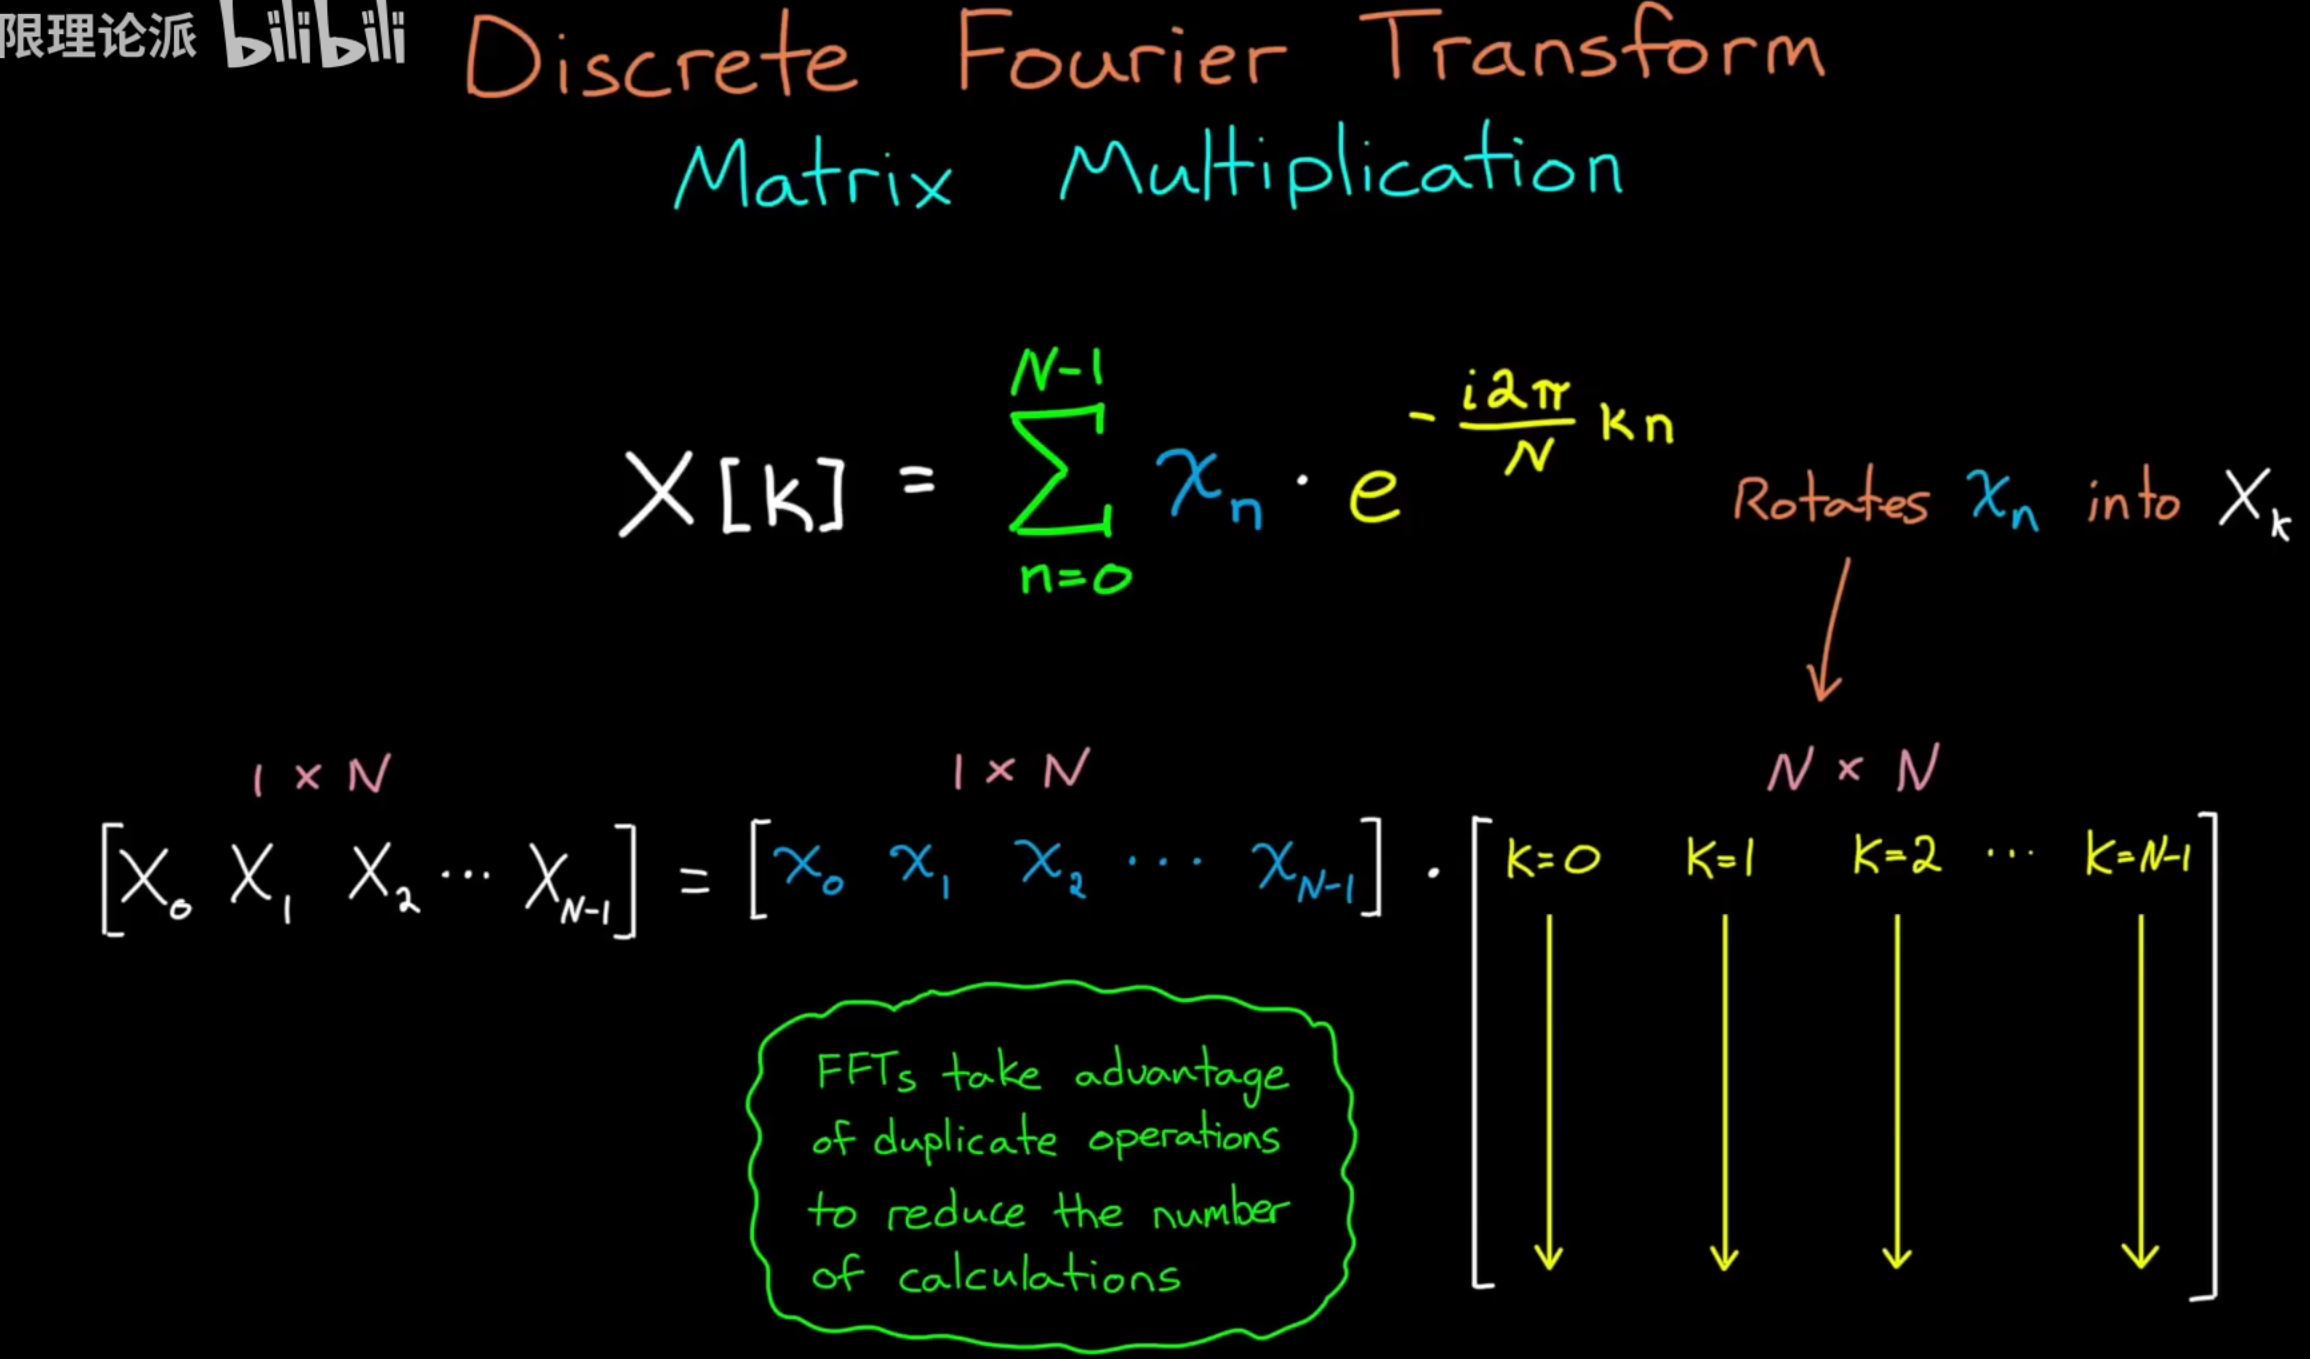 限理论派 bilibili
Discrete Fourier Transform
Matrix Multiplication
X[k] = \sum_{n=0}^{N-1} x_n · e^{-\frac{i2π}{N}kn}
Rotates x_n into X_k
1 × N
1 × N
N × N
[X_0 X_1 X_2 ... X_{N-1}] = [x_0 x_1 x_2 ... x_{N-1}] · [k=0 k=1 k=2 ... k=N-1]
FFTs take advantage
of duplicate operations
to reduce the number
of calculations